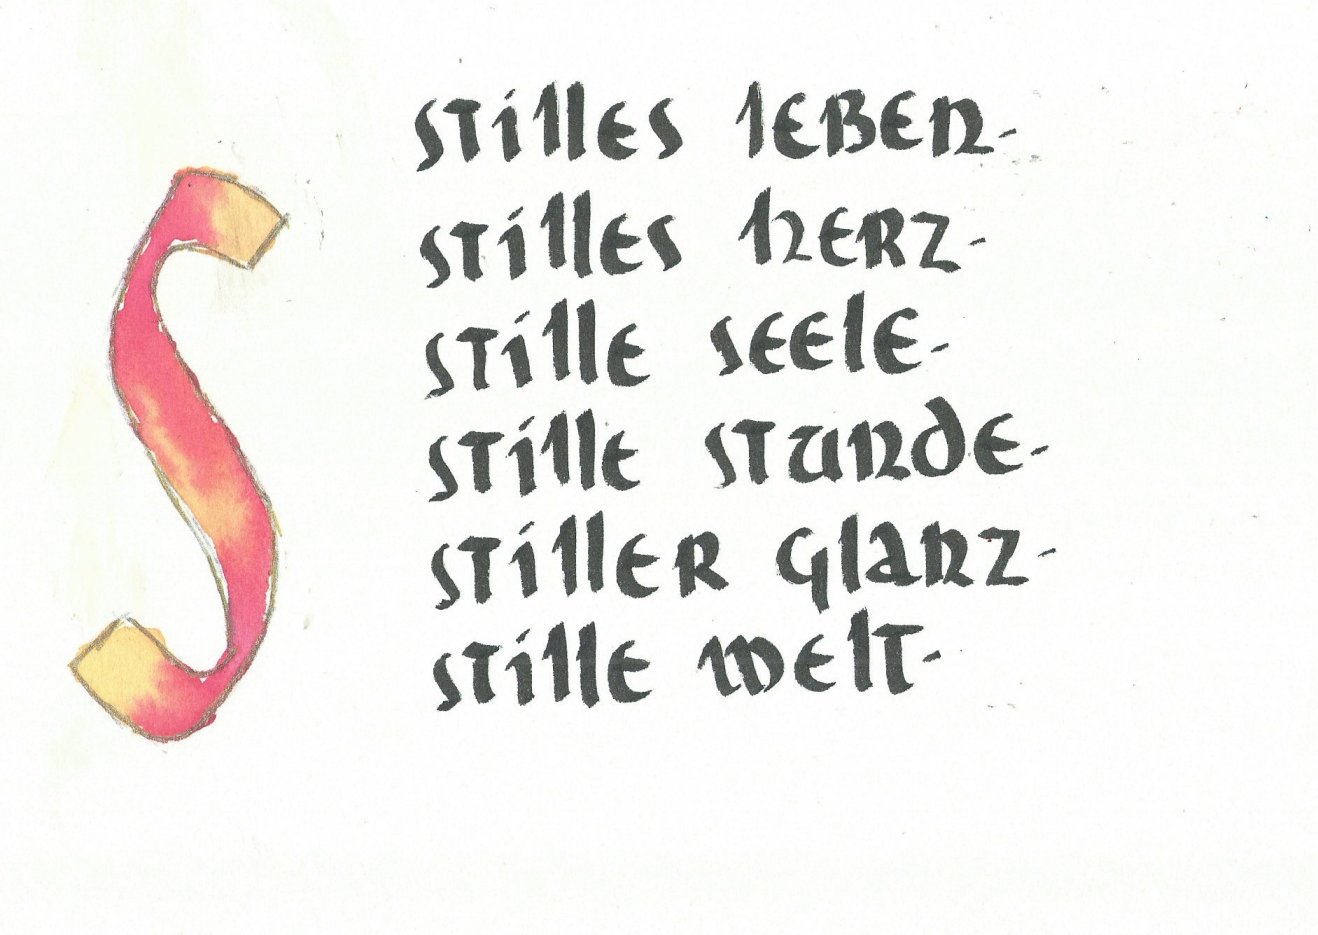 S
stilles leben-
stilles herz-
stille seele-
stille stunde-
stiller glanz-
stille welt-